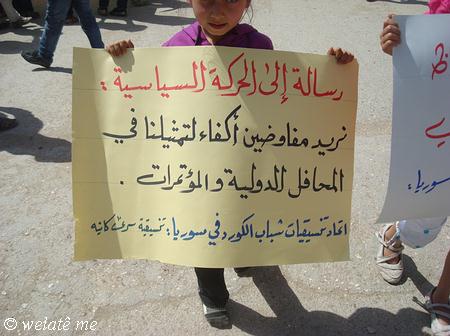 رسالة إلى الحركة السياسية :
نريد مفاوضين أكفاء لتمثيلنا في
المحافل الدولية والمؤتمرات .
اتحاد تنسيقيات شباب الكورد في سوريا : تنسيقية سري كانيه
سوريا :
© welatê me